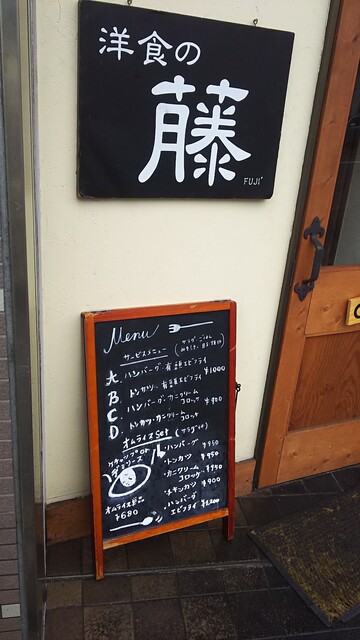 洋食の
藤
FUJI
Menu
サービスメニュー
A ハンバーグ・有頭エビフライ ¥1000
B トンカツ・有頭エビフライ
C ハンバーグ・カニクリームコロッケ ¥900
D トンカツ・カニクリームコロッケ
オムライスset (サラダ付)
ケチャップor
デミソース
・ハンバーグ ¥950
・トンカツ ¥950
・カニクリームコロッケ ¥950
・チキンカツ ¥900
・ハンバーグ
エビフライ ¥1,200
オムライス単品
¥680